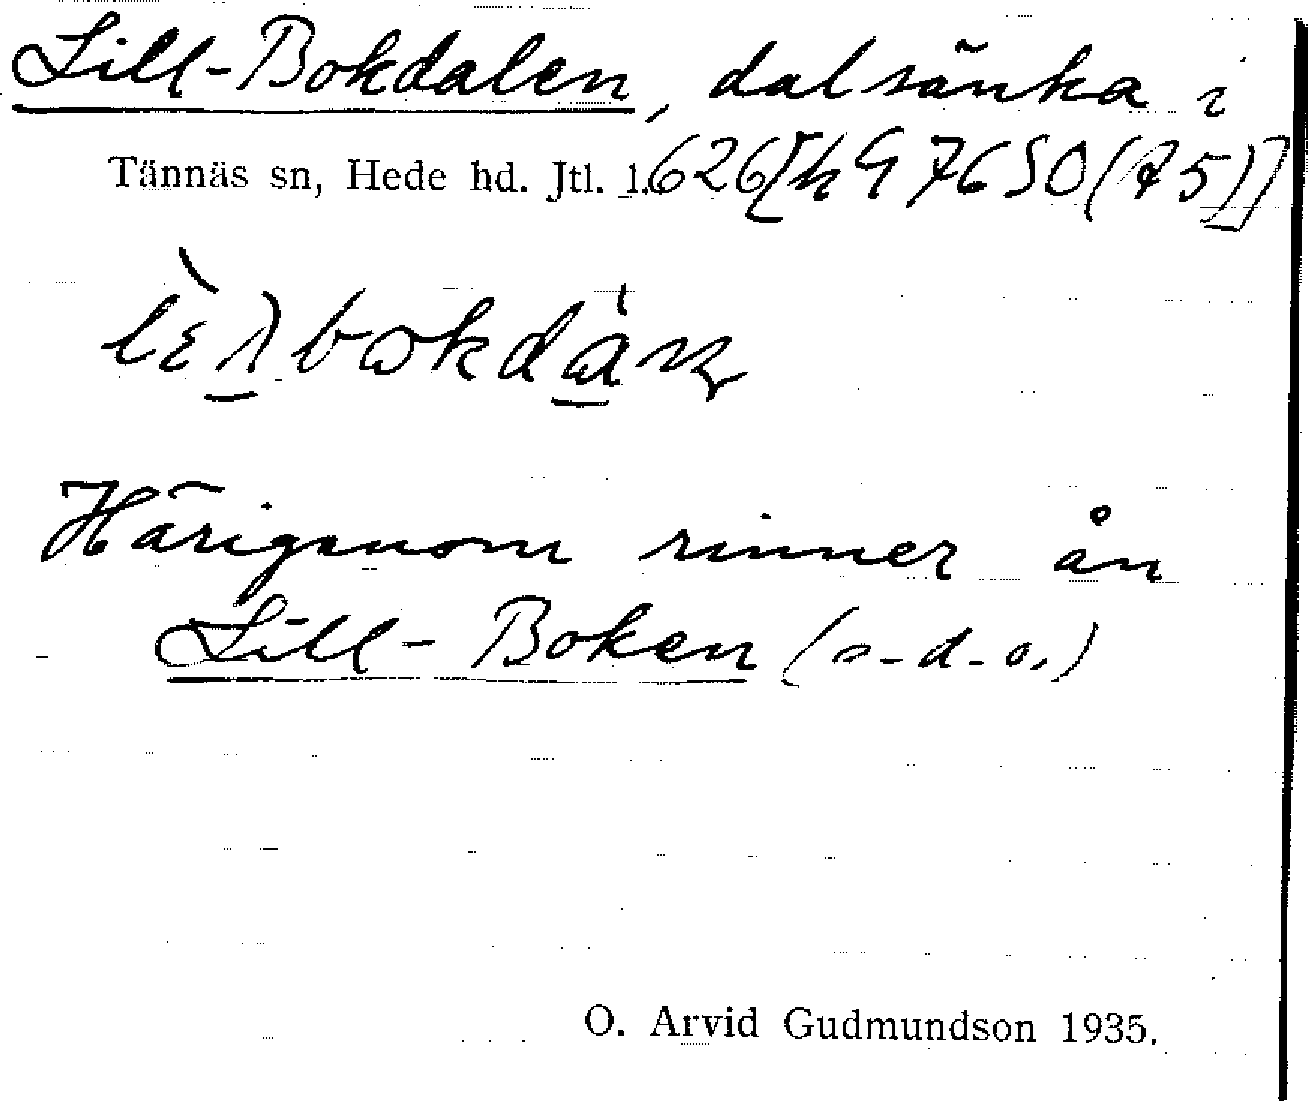 Lill-Bokdalen, dalsänka i
Tännäs sn, Hede hd. Jtl. 1.626[h97650(75)]
Härigenom rinner ån
Lill-Boken (s-d-o.)
O. Arvid Gudmundson 1935.